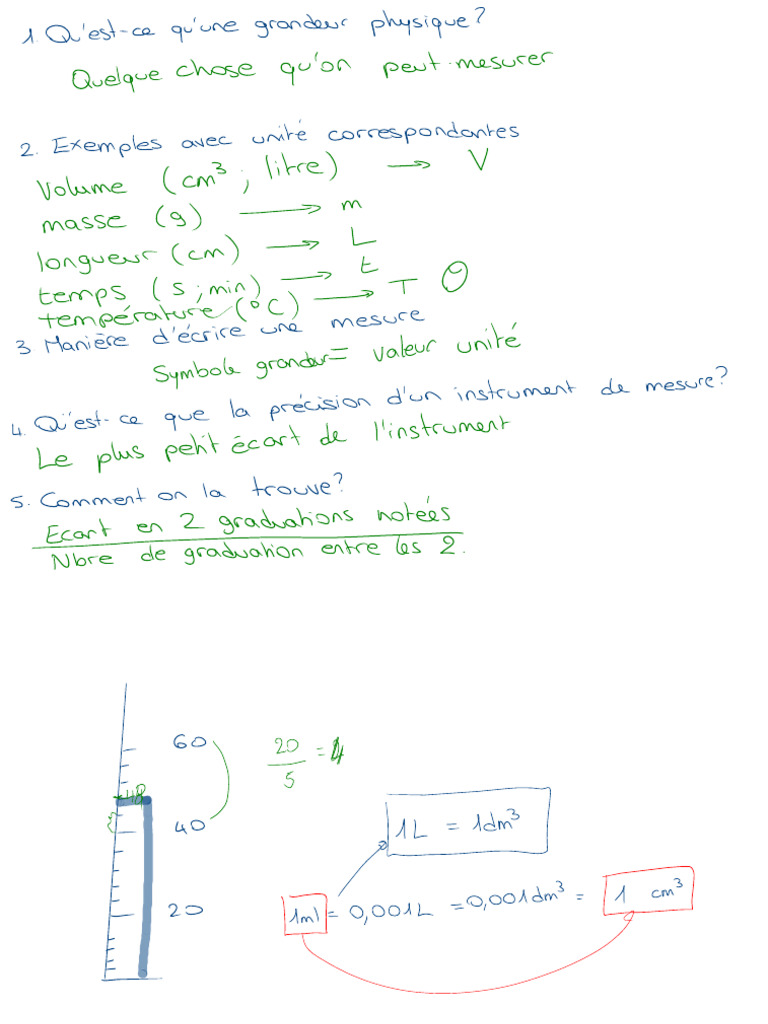 1. Qu'est-ce qu'une grandeur physique?
Quelque chose qu'on peut mesurer
2. Exemples avec unité correspondantes
Volume (cm³ ; litre) → V
masse (g) → m
longueur (cm) → L
temps (s ; min) → t
température (°C) → T Θ
3 Manière d'écrire une mesure
Symbole grandeur = valeur unité
4. Qu'est-ce que la précision d'un instrument de mesure?
Le plus petit écart de l'instrument
5. Comment on la trouve?
Ecart en 2 graduations notées
Nbre de graduation entre les 2.
60
20/5 = 4
48
40
1L = 1dm³
20
1ml = 0,001L = 0,001dm³ = 1 cm³